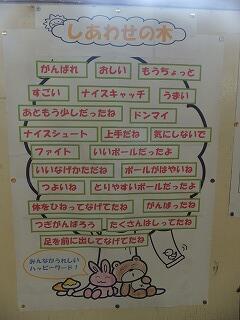 しあわせの木
がんばれ おしい もうちょっと
すごい ナイスキャッチ うまい
あともう少しだったね ドンマイ
ナイスシュート 上手だね 気にしないで
ファイト いいボールだったよ
いいなげかただね ボールがはやいね
つよいね とりやすいボールだったよ
体をひねってなげてたね がんばったね
つぎがんばろう たくさんはしってたね
足を前に出してなげてたね
みんながうれしい
ハッピーワード!